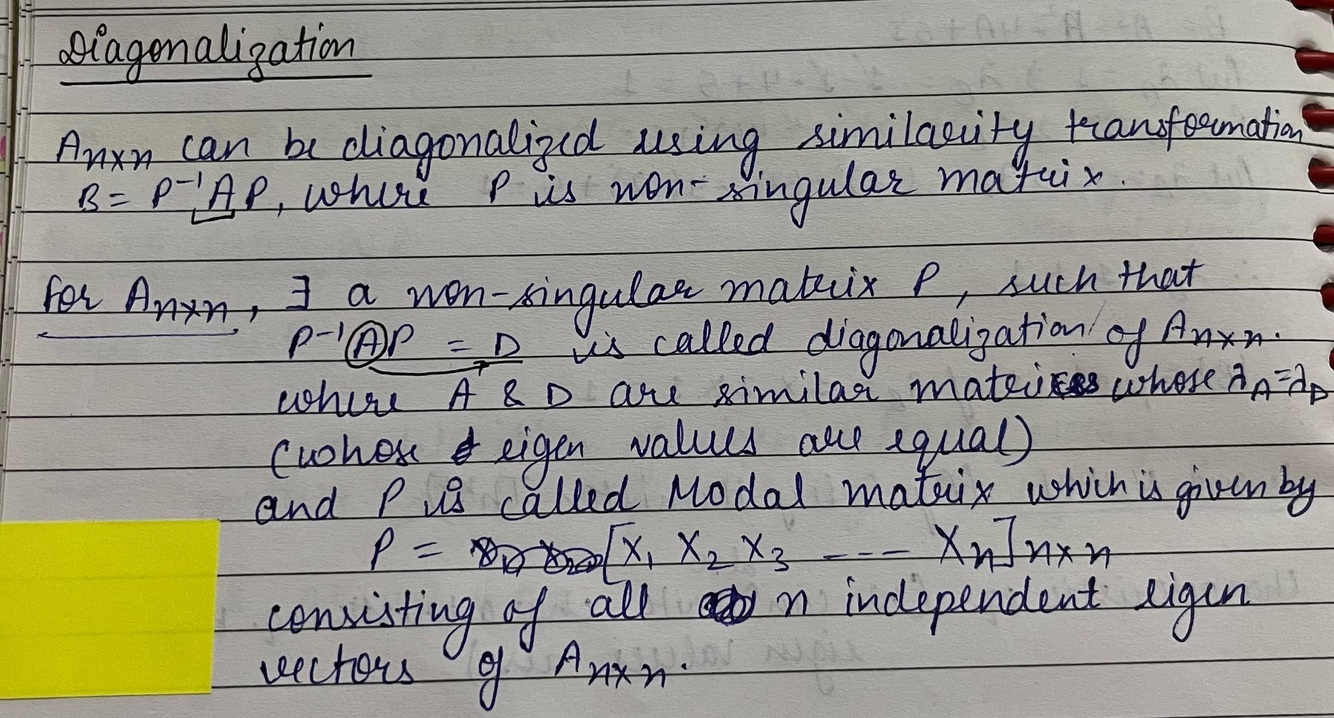 Diagonalization
Anxn can be diagonalized using similarity transformation
B = P⁻¹AP, where P is non-singular matrix.
for Anxn, ∃ a non-singular matrix P, such that
P⁻¹AP = D is called diagonalization of Anxn.
where A & D are similar matrices whose λA=λD
(whose eigen values are equal)
and P is called Modal matrix which is given by
P = [X₁ X₂ X₃ ---- Xn]nxn
consisting of all n independent eigen
vectors of Anxn.